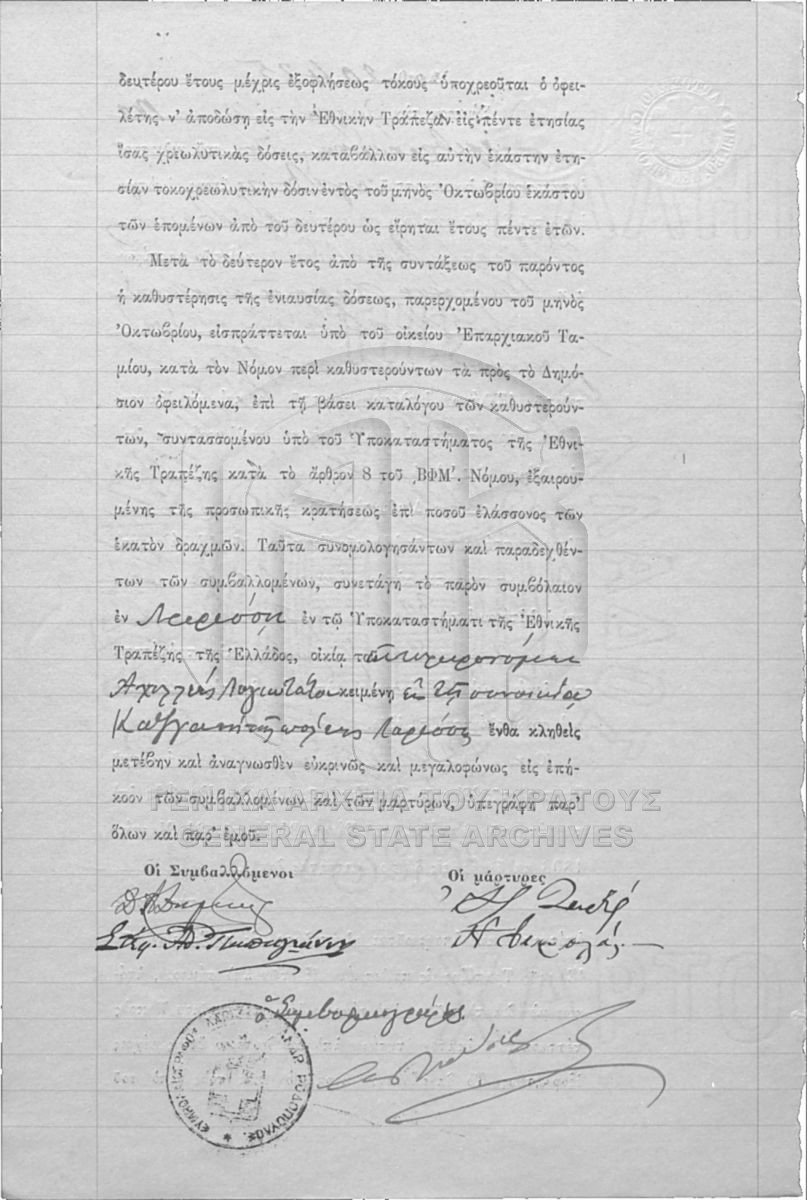 δευτέρου ἔτους μέχρις ἐξοφλήσεως τόκους ὑποχρεοῦται ὁ ὀφει-
λέτης ν' ἀποδώσῃ εἰς τὴν Ἐθνικὴν Τράπεζαν εἰς πέντε ἐτησίας
ἴσας χρεωλυτικὰς δόσεις, καταβάλλων εἰς αὐτὴν ἑκάστην ἐτη-
σίαν τοκοχρεωλυτικὴν δόσιν ἐντὸς τοῦ μηνὸς Ὀκτωβρίου ἑκάστου
τῶν ἑπομένων ἀπὸ τοῦ δευτέρου ὡς εἴρηται ἔτους πέντε ἐτῶν.
Μετὰ τὸ δεύτερον ἔτος ἀπὸ τῆς συντάξεως τοῦ παρόντος
ἡ καθυστέρησις τῆς ἐνιαυσίας δόσεως, παρερχομένου τοῦ μηνὸς
Ὀκτωβρίου, εἰσπράττεται ὑπὸ τοῦ οἰκείου Ἐπαρχιακοῦ Τα-
μίου, κατὰ τὸν Νόμον περὶ καθυστερούντων τὰ πρὸς τὸ Δημό-
σιον ὀφειλόμενα, ἐπὶ τῇ βάσει καταλόγου τῶν καθυστερούν-
των, συντασσομένου ὑπὸ τοῦ Ὑποκαταστήματος τῆς Ἐθνι-
κῆς Τραπέζης κατὰ τὸ ἄρθρον 8 τοῦ ͵ΒΦΜ'. Νόμου, ἐξαιρου-
μένης τῆς προσωπικῆς κρατήσεως ἐπὶ ποσοῦ ἐλάσσονος τῶν
ἑκατὸν δραχμῶν. Ταῦτα συνομολογησάντων καὶ παραδεχθέν-
των τῶν συμβαλλομένων, συνετάγη τὸ παρὸν συμβόλαιον
ἐν Λαρίσσῃ ἐν τῷ Ὑποκαταστήματι τῆς Ἐθνικῆς
Τραπέζης τῆς Ἑλλάδος, οἰκίᾳ τῶν κληρονόμων
Ἀχιλλέως Λογιωτάτου κειμένῃ ἐν τῇ συνοικίᾳ
τῆς πόλεως Λαρίσσης ἔνθα κληθεὶς
μετέβην καὶ ἀναγνωσθὲν εὐκρινῶς καὶ μεγαλοφώνως εἰς ἐπή-
κοον τῶν συμβαλλομένων καὶ τῶν μαρτύρων, ὑπεγράφη παρ'
ὅλων καὶ παρ' ἐμοῦ.
ΓΕΝΙΚΑ ΑΡΧΕΙΑ ΤΟΥ ΚΡΑΤΟΥΣ
GENERAL STATE ARCHIVES
Οἱ Συμβαλλόμενοι Οἱ μάρτυρες
Στέφ. Ἀθ. Παπαγιάννης
ὁ Συμβολαιογράφος